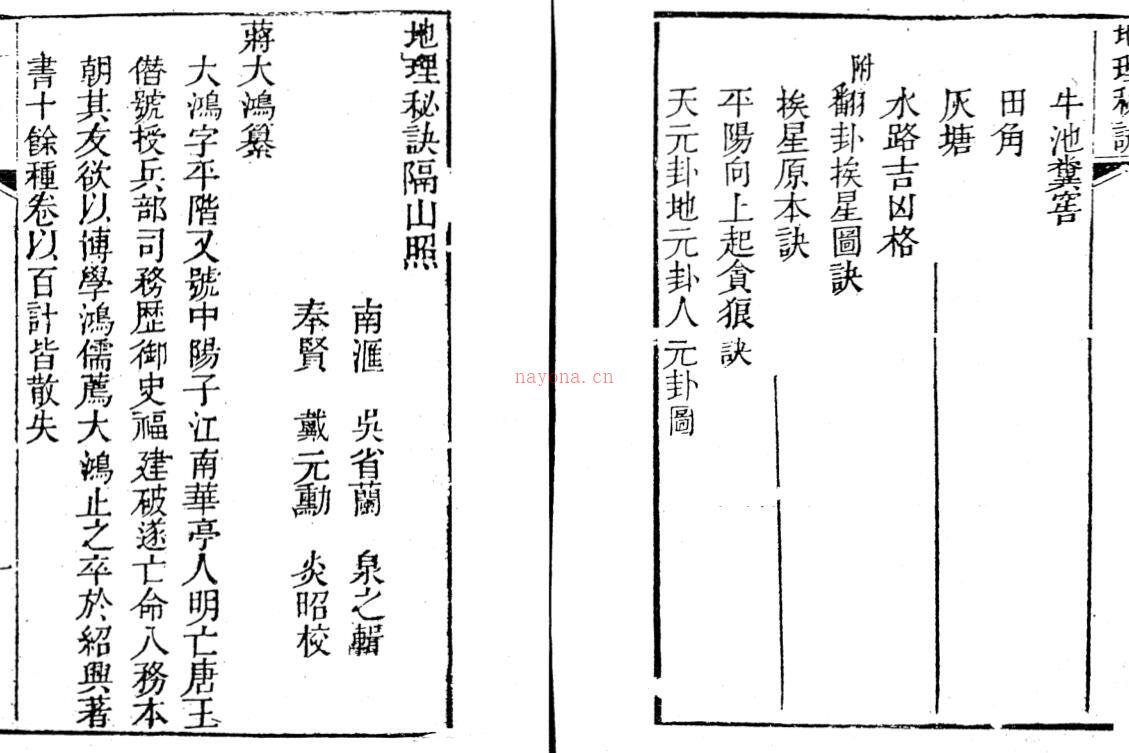 地理秘訣
牛池糞窖
田角
灰塘
水路吉凶格
附翻卦挨星圖訣
挨星原本訣
平陽向上起貪狼訣
天元卦地元卦人元卦圖
地理秘訣隔山照
南滙 吳省蘭 泉之輯
奉賢 戴元勳 炎昭校
蔣大鴻纂
大鴻字平階又號中陽子江南華亭人明亡唐王
僭號授兵部司務歴御史福建破遂亡命入務本
朝其友欲以博學鴻儒薦大鴻止之卒於紹興著
書十餘種卷以百計皆散失
一
nayona.cn